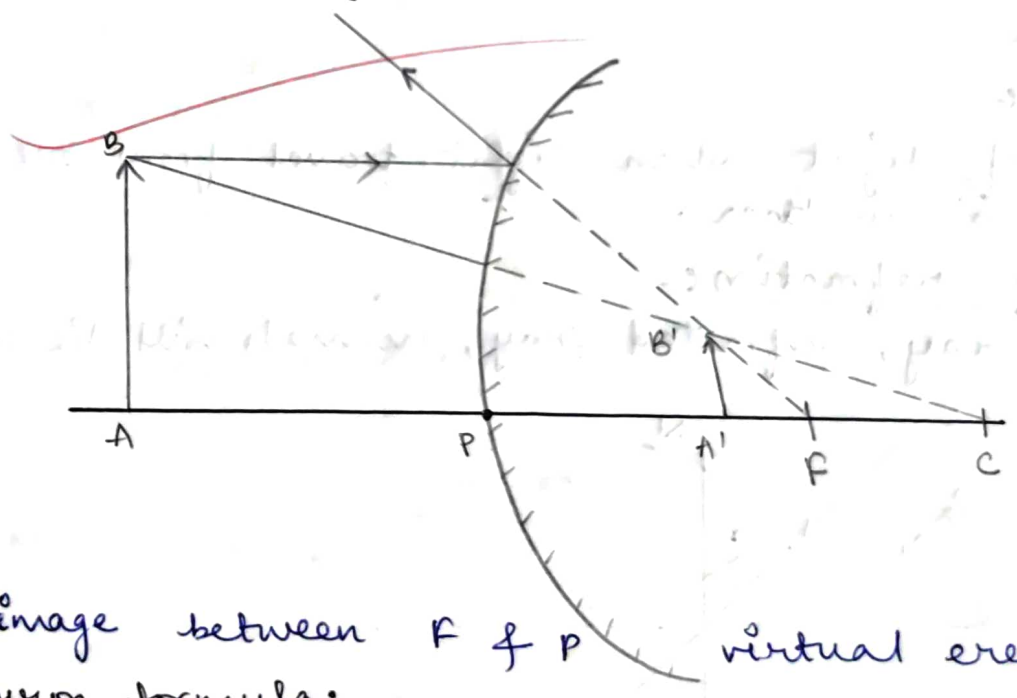 B
B'
A
P
A'
F
C
image between F & P virtual ere
formula: